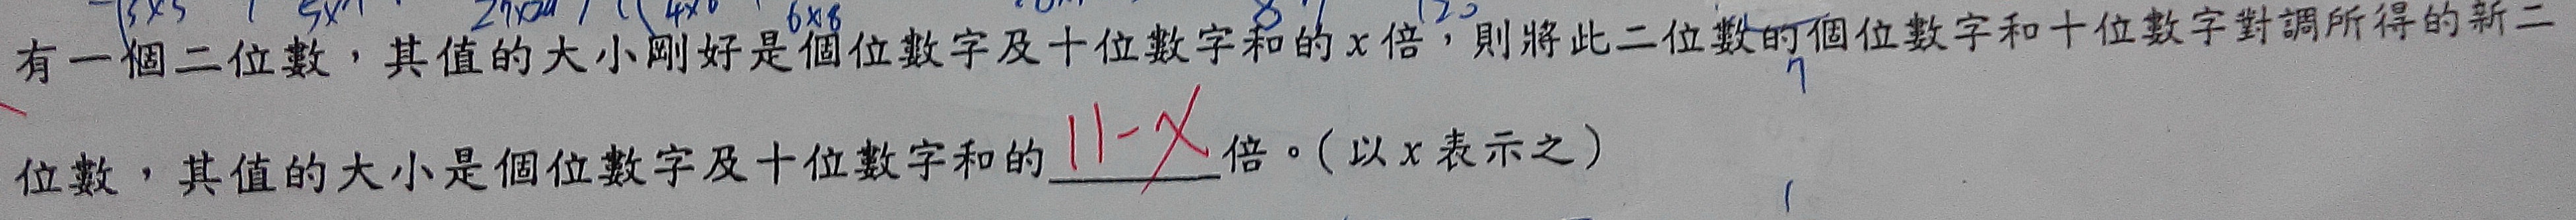 有一個二位數，其值的大小剛好是個位數字及十位數字和的 x 倍，則將此二位數的個位數字和十位數字對調所得的新二
7
位數，其值的大小是個位數字及十位數字和的 11-x 倍。（以 x 表示之）